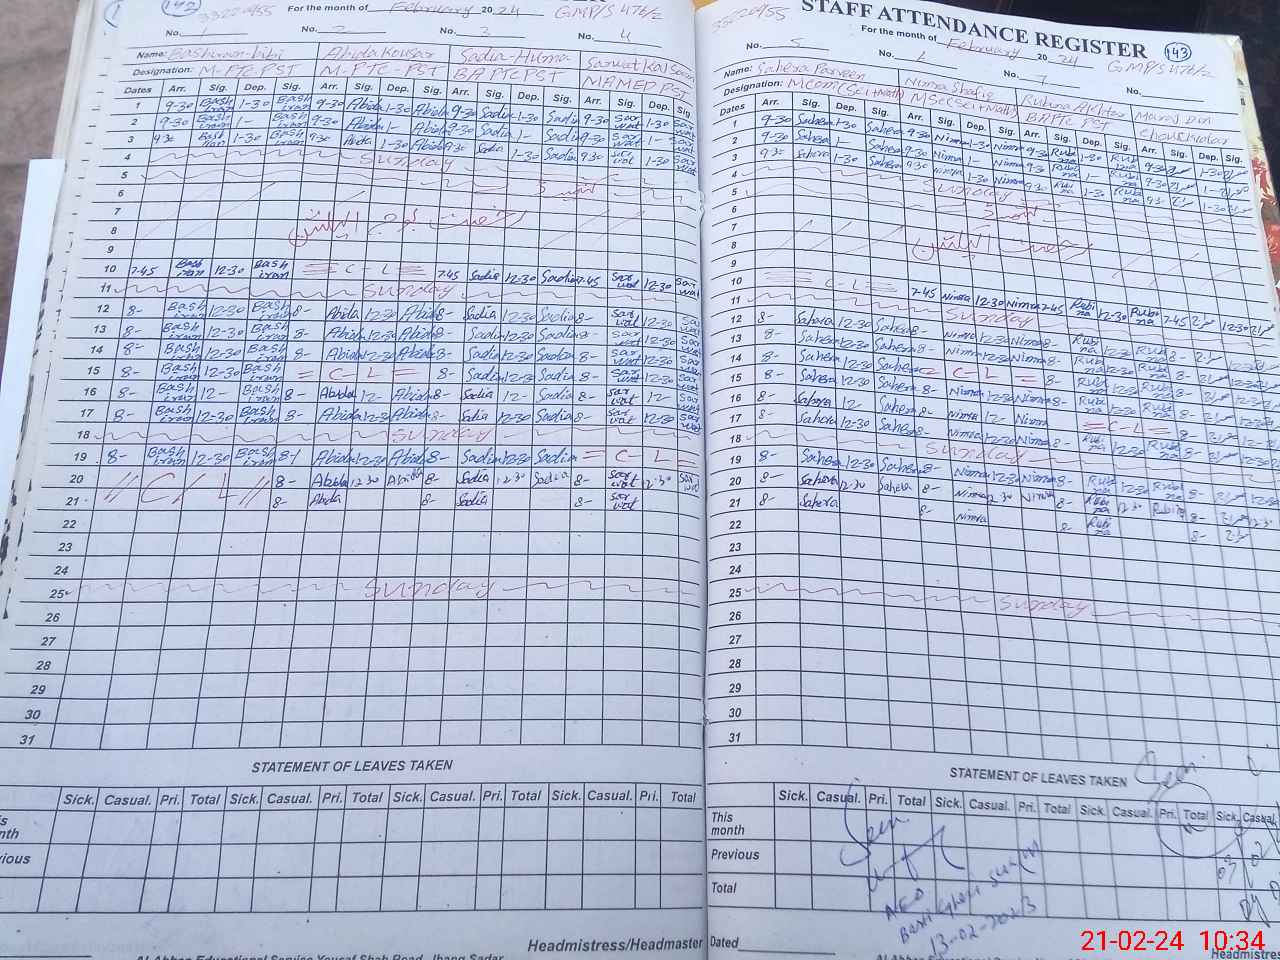 142
33220955 For the month of February 2024 GMP/S 476/2
No. 1 No. 2 No. 3 No. 4
Name: Bashiraan bibi Abida Kousar Sadia-Huma Sarwat Kalsoom
Designation: M-PTC-PST M-PTC-PST BA PTC PST MA MED PST
Dates Arr. Sig. Dep. Sig. Arr. Sig. Dep. Sig. Arr. Sig. Dep. Sig. Arr. Sig. Dep. Sig.
1 9-30 Bashiran 1-30 Bashiran 9-30 Abida 1-30 Abida 9-30 Sadia 1-30 Sadia 9-30 Sarwat 1-30 Sarwat
2 9-30 Bashiran 1- Bashiran 9-30 Abida 1- Abida 9-30 Sadia 1- Sadia 9-30 Sarwat 1- Sarwat
3 9-30 Bashiran 1-30 Bashiran 9-30 Abida 1-30 Abida 9-30 Sadia 1-30 Sadia 9-30 Sarwat 1-30 Sarwat
4 Sunday
5
6
7
8
9
10 7-45 Bashiran 12-30 Bashiran = C-L = 7-45 Sadia 12-30 Sadia 7-45 Sarwat 12-30 Sarwat
11 Sunday
12 8- Bashiran 12-30 Bashiran 8- Abida 12-30 Abida 8- Sadia 12-30 Sadia 8- Sarwat 12-30 Sarwat
13 8- Bashiran 12-30 Bashiran 8- Abida 12-30 Abida 8- Sadia 12-30 Sadia 8- Sarwat 12-30 Sarwat
14 8- Bashiran 12-30 Bashiran 8- Abida 12-30 Abida 8- Sadia 12-30 Sadia 8- Sarwat 12-30 Sarwat
15 8- Bashiran 12-30 Bashiran = C-L = 8- Sadia 12-30 Sadia 8- Sarwat 12-30 Sarwat
16 8- Bashiran 12- Bashiran 8- Abida 12- Abida 8- Sadia 12- Sadia 8- Sarwat 12- Sarwat
17 8- Bashiran 12-30 Bashiran 8- Abida 12-30 Abida 8- Sadia 12-30 Sadia 8- Sarwat 12-30 Sarwat
18 Sunday
19 8- Bashiran 12-30 Bashiran 8- Abida 12-30 Abida 8- Sadia 12-30 Sadia = C-L =
20 // C/L // 8- Abida 12-30 Abida 8- Sadia 12-30 Sadia 8- Sarwat 12-30 Sarwat
21 8- Abida 8- Sadia 8- Sarwat
22
23
24
25 Sunday
26
27
28
29
30
31
STATEMENT OF LEAVES TAKEN
Sick. Casual. Pri. Total Sick. Casual. Pri. Total Sick. Casual. Pri. Total Sick. Casual. Pri. Total
is
nth
vious
Headmistress/Headmaster
STAFF ATTENDANCE REGISTER 143
33220955 For the month of February 2024 GMP/S 476/2
No. 5 No. 6 No. 7 No.
Name: Sahera Parveen Nimra Shafiq Rubina Akhtar Murad Din
Designation: MCom(Sci+Math) MSc(Sci+Math) BA PTC PST Chowkidar
Dates Arr. Sig. Dep. Sig. Arr. Sig. Dep. Sig. Arr. Sig. Dep. Sig. Arr. Sig. Dep. Sig.
1 9-30 Sahera 1-30 Sahera 9-30 Nimra 1-30 Nimra 9-30 Rubina 1-30 Rubina 9-30
2 9-30 Sahera 1- Sahera 9-30 Nimra 1- Nimra 9-30 Rubina 1- Rubina 9-30 1-
3 9-30 Sahera 1-30 Sahera 9-30 Nimra 1-30 Nimra 9-30 Rubina 1-30 Rubina 9-30 1-30
4 Sunday
5
6
7
8
9
10 = C-L = 7-45 Nimra 12-30 Nimra 7-45 Rubina 12-30 Rubina 7-45 12-30
11 Sunday
12 8- Sahera 12-30 Sahera 8- Nimra 12-30 Nimra 8- Rubina 12-30 Rubina 8- 12-30
13 8- Sahera 12-30 Sahera 8- Nimra 12-30 Nimra 8- Rubina 12-30 Rubina 8- 12-30
14 8- Sahera 12-30 Sahera = C-L = 8- Rubina 12-30 Rubina 8- 12-30
15 8- Sahera 12-30 Sahera 8- Nimra 12-30 Nimra 8- Rubina 12-30 Rubina 8- 12-30
16 8- Sahera 12- Sahera 8- Nimra 12- Nimra = C-L = 8- 12-
17 8- Sahera 12-30 Sahera 8- Nimra 12-30 Nimra 8- Rubina 12-30 Rubina 8- 12-30
18 Sunday
19 8- Sahera 12-30 Sahera 8- Nimra 12-30 Nimra 8- Rubina 12-30 Rubina 8- 12-30
20 8- Sahera 12-30 Sahera 8- Nimra 12-30 Nimra 8- Rubina 12-30 Rubina 8- 12-30
21 8- Sahera 8- Nimra 8- Rubina 8-
22
23
24
25 Sunday
26
27
28
29
30
31
STATEMENT OF LEAVES TAKEN
Sick. Casual. Pri. Total Sick. Casual. Pri. Total Sick. Casual. Pri. Total Sick. Casual.
This month
Previous
Total
Seen
Seen
AEO
13-02-2023
Dated
Headmistress
21-02-24 10:34